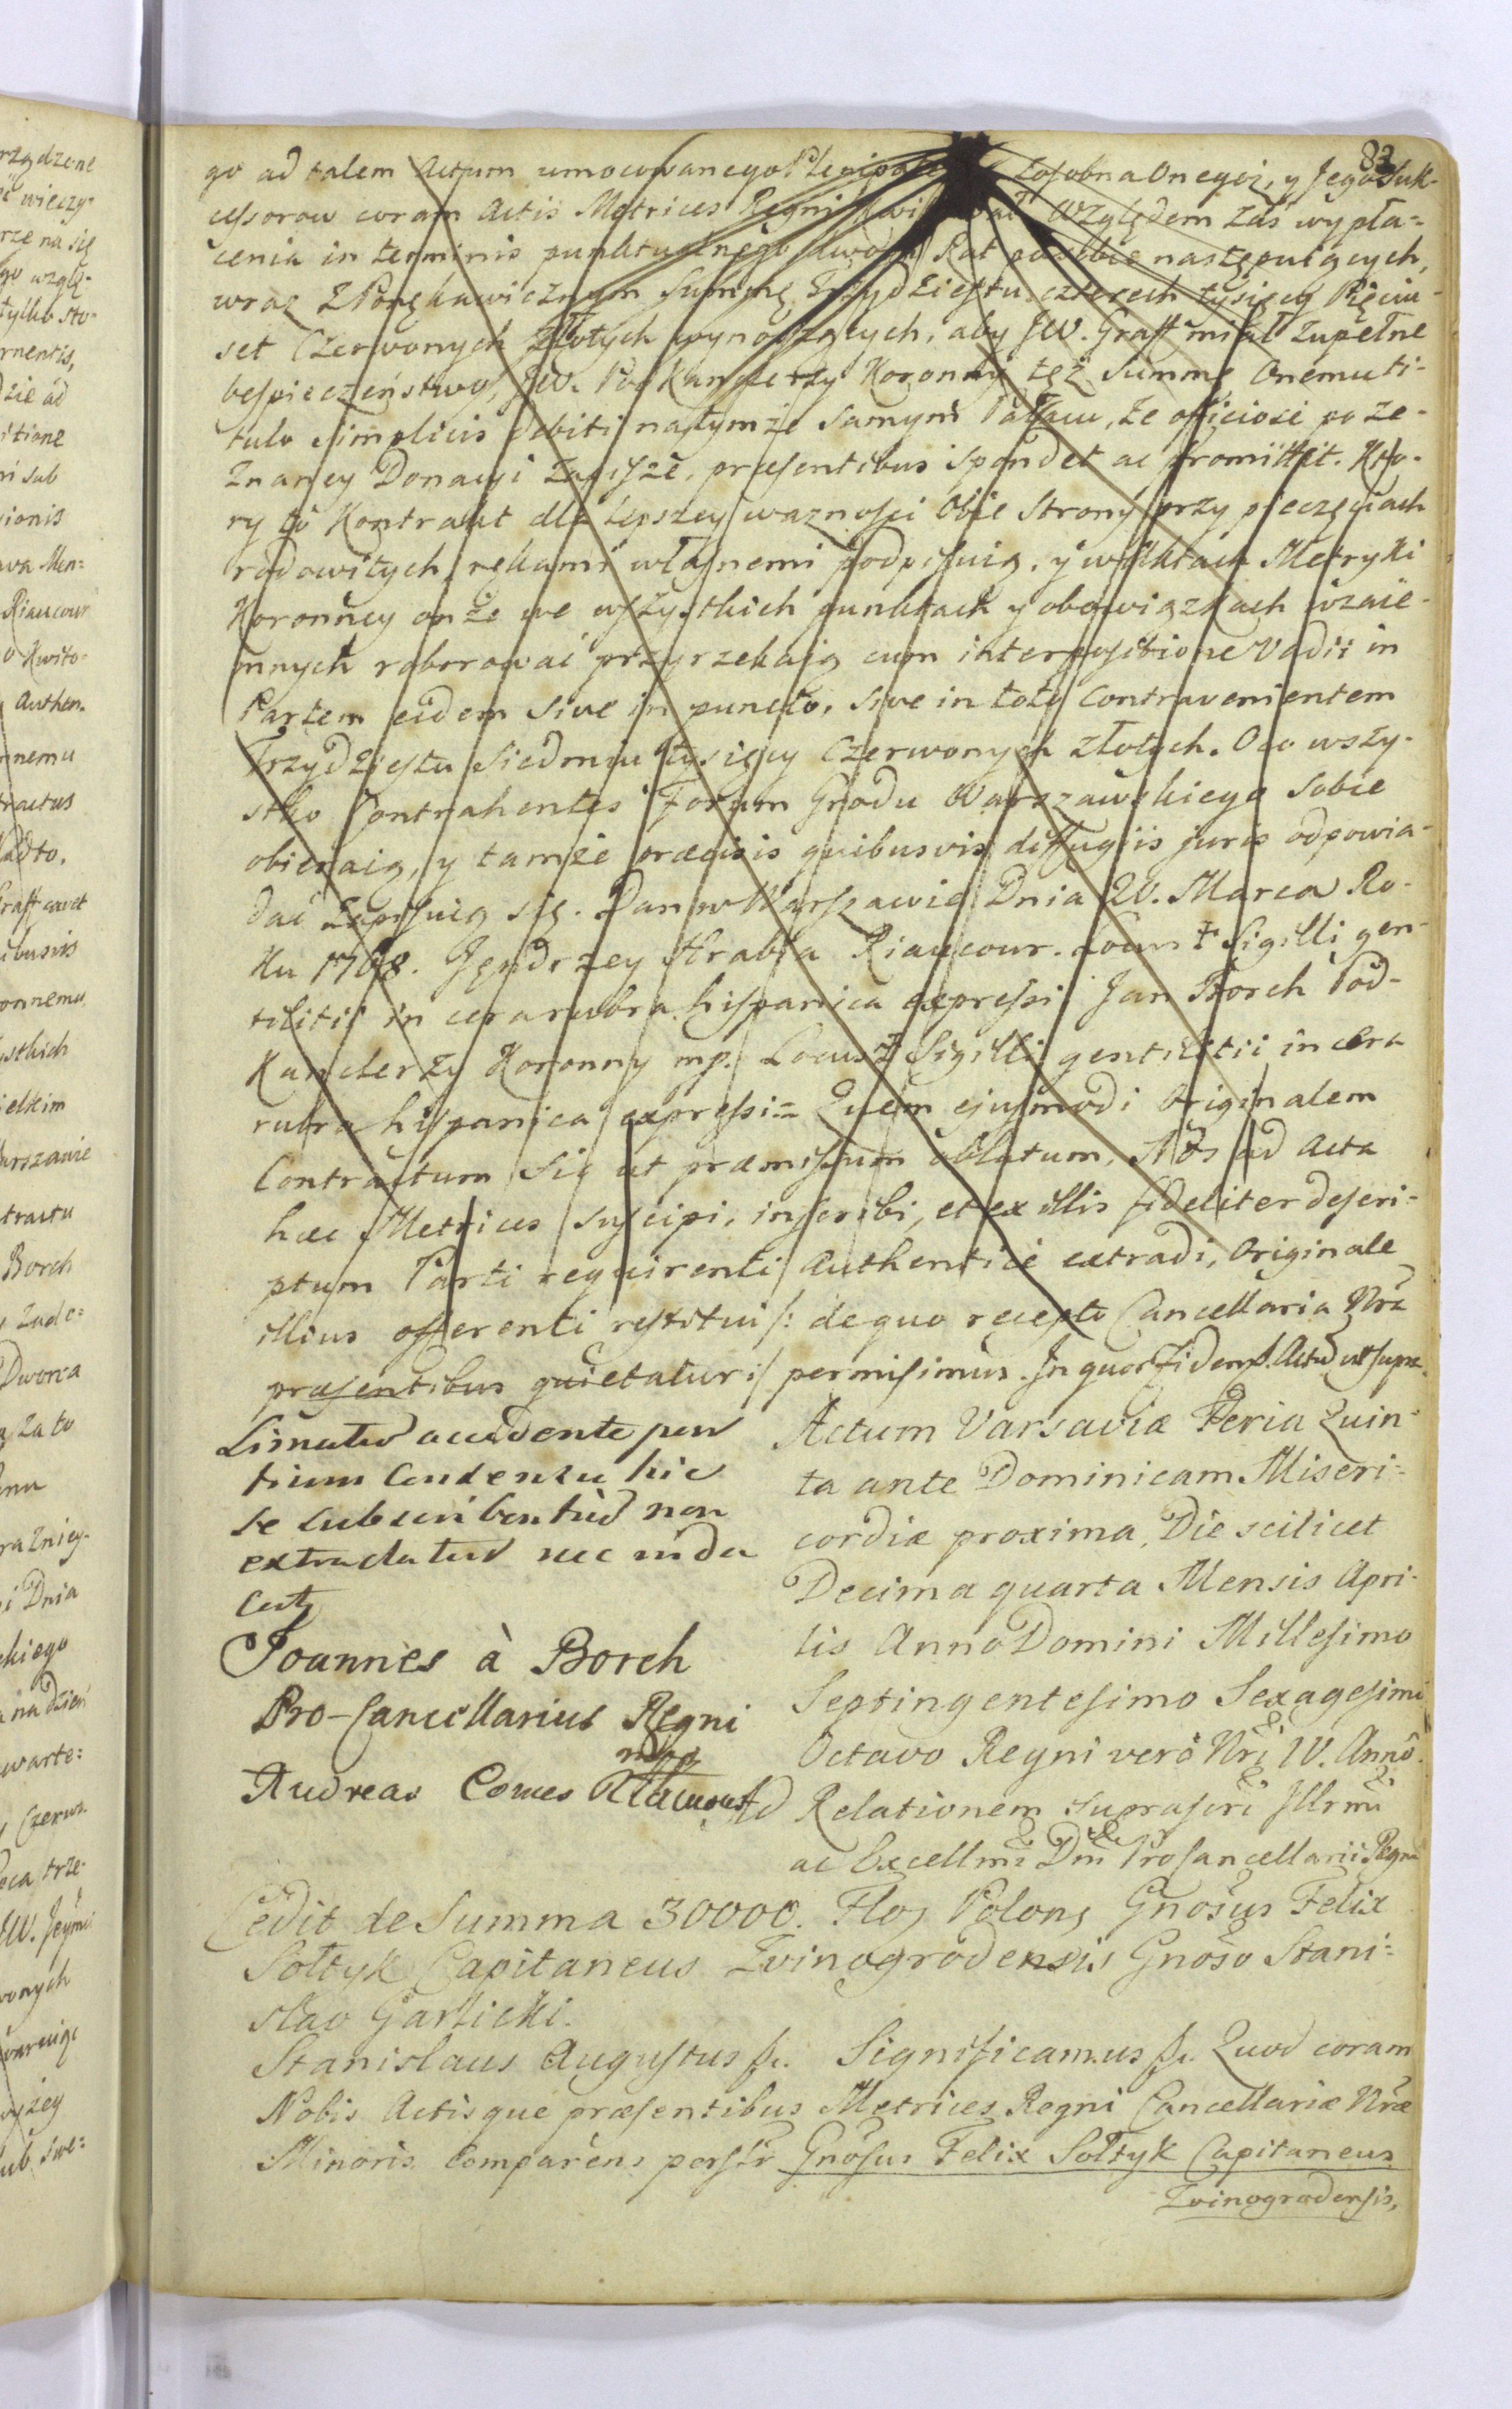 83
go ad talem Actum umocowanego Plenipote Zosobna Onegoż, y Jego Suk-
cessorow coram Actis Metrices Regni Względem zaś wypła=
cenia in terminis punktualnego dwóch Rat po sobie następuiących,
wraz z Porękawicznym Summę Trzydziestu czterech tysięcy Pięciu-
set Czerwonych Złotych wynoszących, aby JW. Graff miał zupełne
bespieczeństwo, JW. Pod Kanclerzy Koronny tęż Summę Onemu ti-
tulo simplicis debiti na tymże samym Pałacu, że officiose po ze-
znaney Donacyi zapisze, præsentibus spondet ac promittit. Kto-
ry to Kontrakt dla lepszey ważności Obie Strony przy pieczęciach
rodowitych, rękami własnemi podpisuią, y w Aktach Metryki
Koronney onże we wszystkich punktach y obowiązkach wzaie-
mnych roborować przyrzekaią cum interpositione Vadii in
Partem eidem sive in puncto, sive in toto Contravenientem
Trzydziestu Siedmiu tysięcy Czerwonych złotych. Oco wszy-
stko Contrahentes Forum Grodu Warszawskiego Sobie
obieraią, y tamże præcisis quibusvis diffugiis juris odpowia-
dać zapisuią się. Dan w Warszawie Dnia 20. Marca Ro-
ku 1768. Jędrzey Hrabia Riaucour. Locus ‡ Sigilli gen-
tilitii in cera rubra hispanica expressi Jan Borch Pod-
Kanclerzy Koronny mp. Locus ‡ Sigilli gentilitii in cera
rubra hispanica expressi = Quem ejusmodi Originalem
Contractum sic ut præmissum oblatum, Nos ad Acta
hæc Metrices suscipi, inscribi, et ex illis fideliter descri-
ptum Parti requirenti Authentice extradi, Originale
illius offerenti restitui /: de quo recepto Cancellaria Nrã
præsentibus quietatur :/ permisimus. In quor Fidem p. Actũ ut supra.
accedente
hic
se subscribentiũ non
extradatur nec
Joannes à Borch
Pro-Cancellarius Regni
mpp
Andreas Comes Riaucour
Actum Varsaviæ Feria Quin-
ta ante Dominicam Miseri=
cordiæ proxima, Die scilicet
Decima quarta Mensis Apri-
lis Anno Domini Millesimo
Septingentesimo Sexagesimo
Octavo Regni verò Nri IV. Annô.
Ad Relationem suprascri Illrmi
ac Excellmi Dni Procancellarii Regni
Cedit de Summa 30000. Flor Polon Gnosus Felix
Sołtyk Capitaneus Zvinogrodensis Gnoso Stani=
slao Garlicki.
Stanislaus Augustus &c. Significamus &c. Quod coram
Nobis Actisque præsentibus Metrices Regni Cancellariæ Nræ
Minoris Comparens persłr Gnosus Felix Sołtyk Capitaneus
Zvinogrodensis,